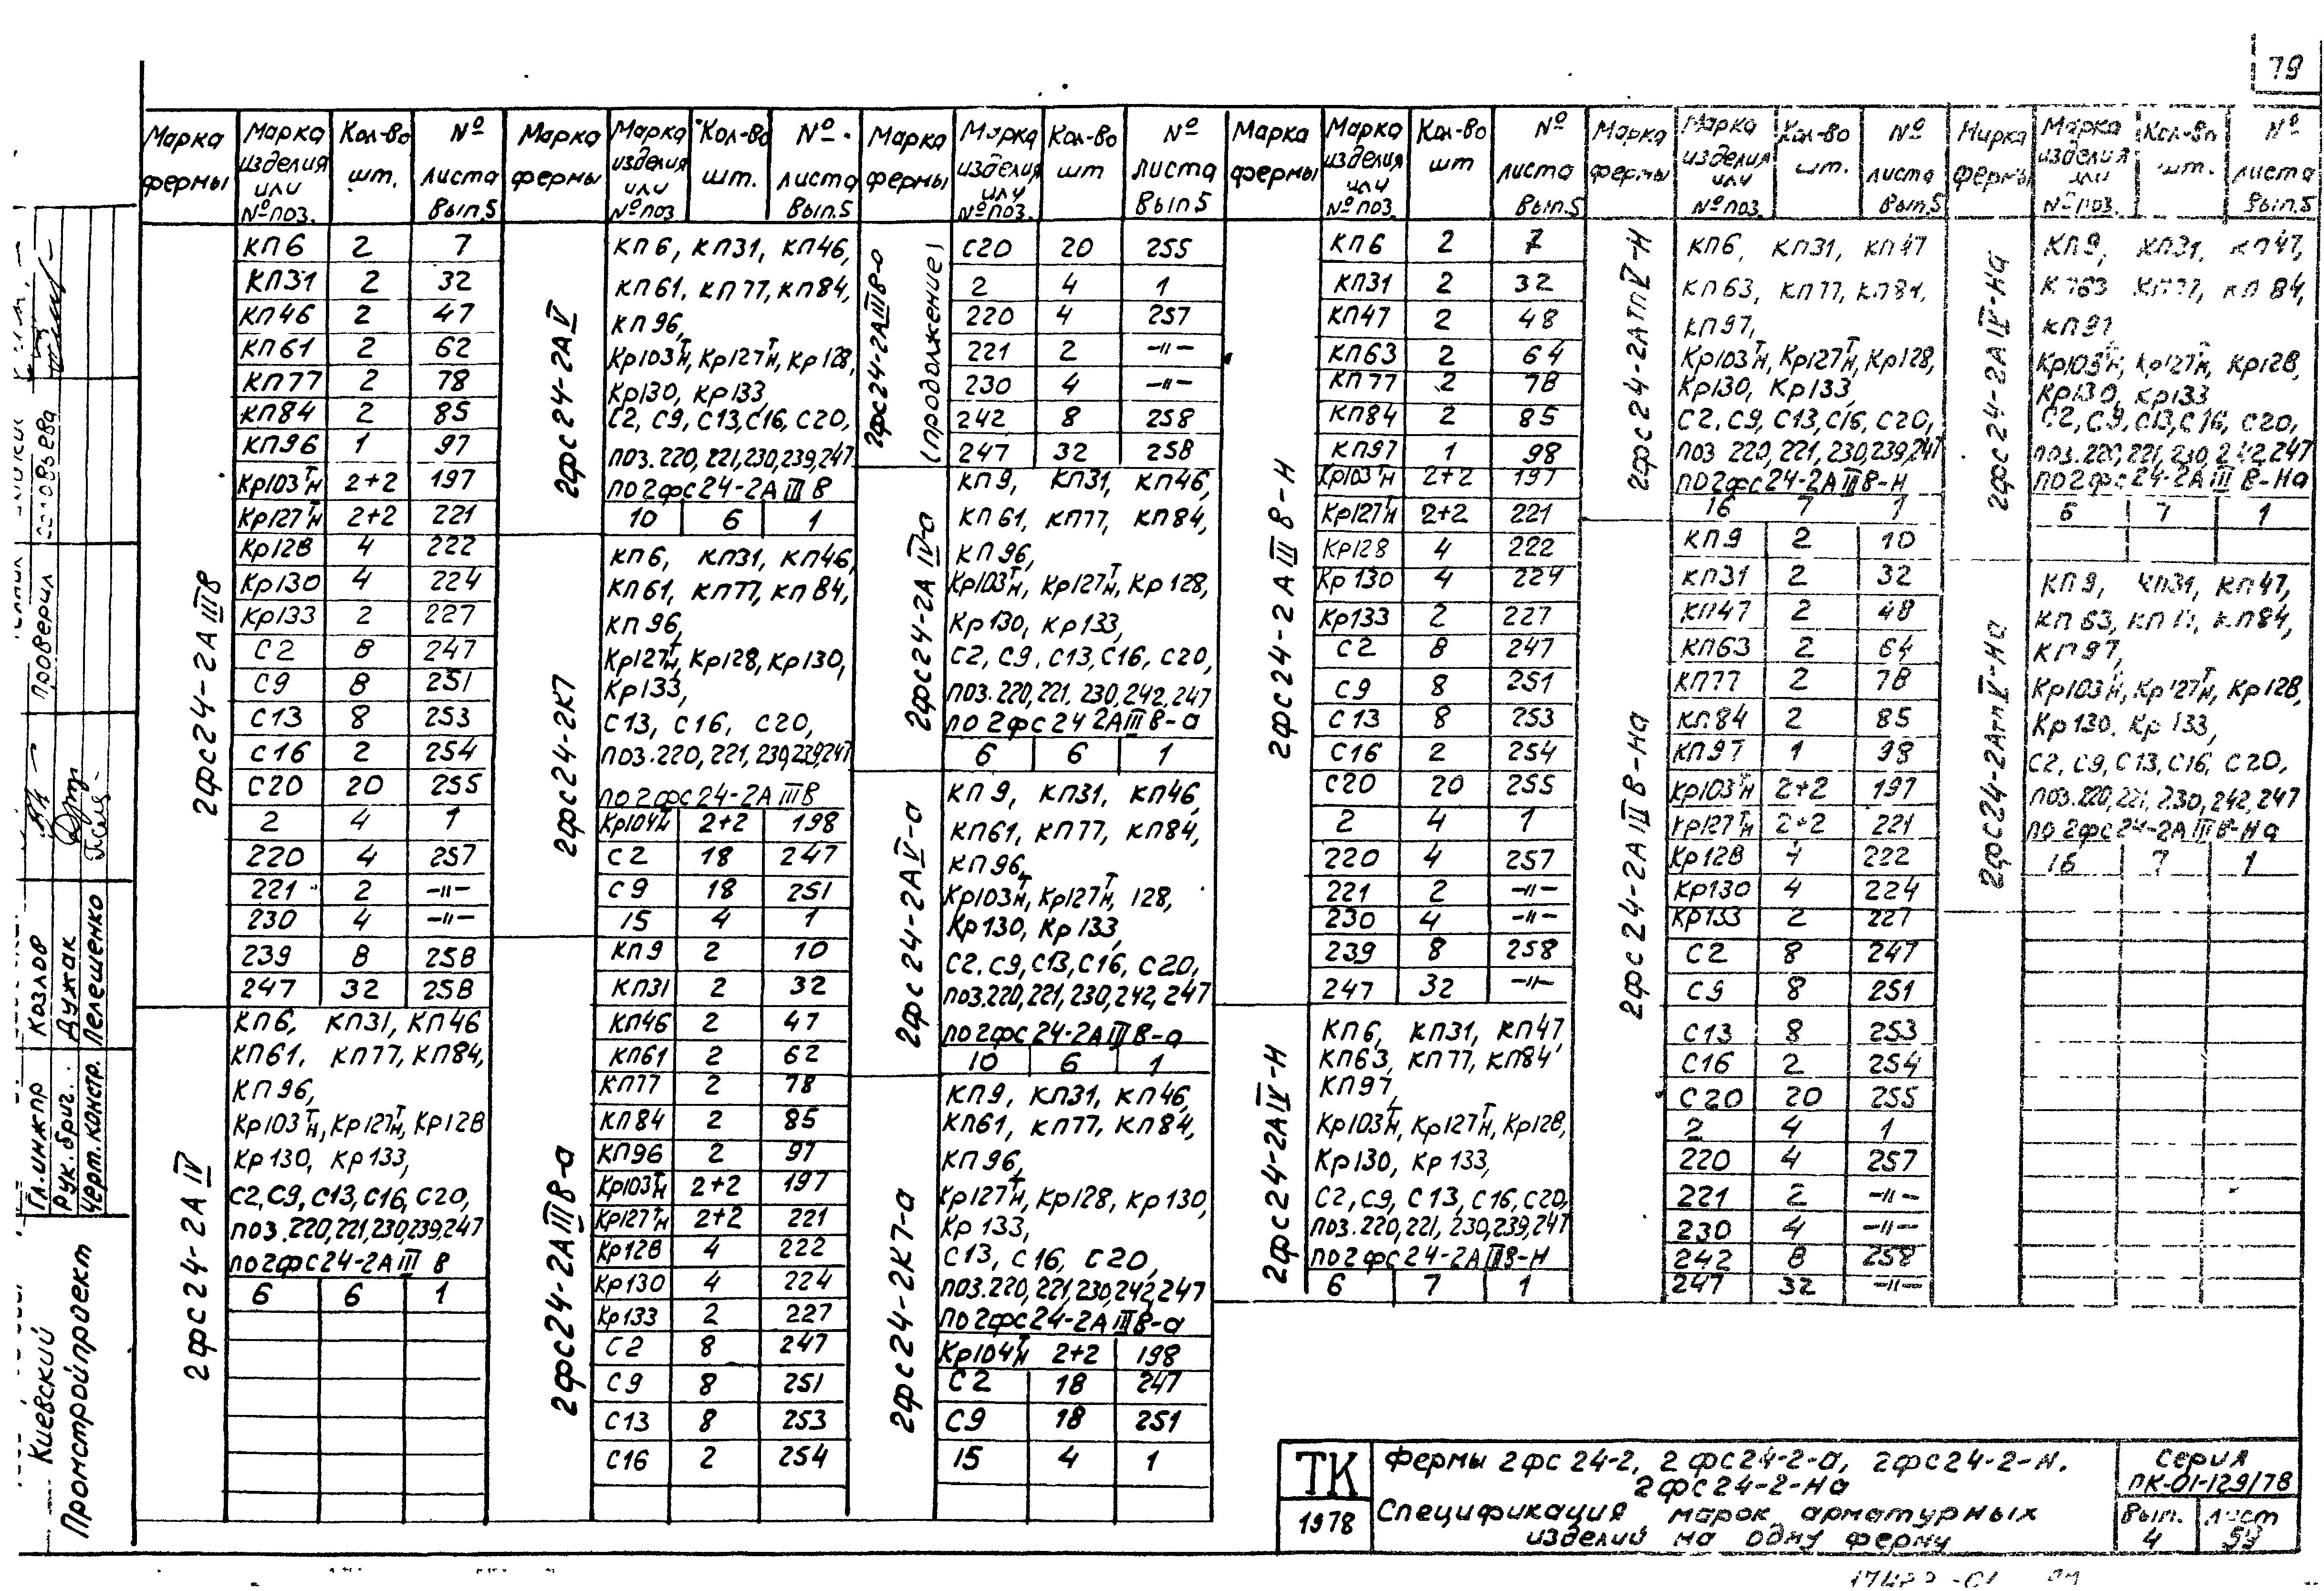 79
Марка фермы | Марка изделия или № поз. | Кол-во шт. | № листа Вып.5
2ФС24-2АIIIВ
КП6 2 7
КП31 2 32
КП46 2 47
КП61 2 62
КП77 2 78
КП84 2 85
КП96 1 97
Кр103Т/Н 2+2 197
Кр127Т/Н 2+2 221
Кр128 4 222
Кр130 4 224
Кр133 2 227
С2 8 247
С9 8 251
С13 8 253
С16 2 254
С20 20 255
2 4 1
220 4 257
221 2 -"-
230 4 -"-
239 8 258
247 32 258
2ФС24-2АIV
КП6, КП31, КП46
КП61, КП77, КП84,
КП96,
Кр103Т/Н, Кр127Т/Н, Кр128
Кр130, Кр133,
С2, С9, С13, С16, С20,
поз.220,221,230,239,247
по 2ФС24-2АIII В
6 6 1
Марка фермы | Марка изделия или № поз | Кол-во шт. | № листа Вып.5
2ФС24-2АV
КП6, КП31, КП46,
КП61, КП77, КП84,
КП96,
Кр103Т/Н, Кр127Т/Н, Кр128,
Кр130, Кр133,
С2, С9, С13, С16, С20,
поз.220,221,230,239,247
по 2ФС24-2АIII В
10 6 1
2ФС24-2К7
КП6, КП31, КП46,
КП61, КП77, КП84,
КП96,
Кр127Т/Н, Кр128, Кр130,
Кр133,
С13, С16, С20,
поз.220,221,230,239,247
по 2ФС24-2АIIIВ
Кр104Т/Н 2+2 198
С2 18 247
С9 18 251
15 4 1
2ФС24-2АIIIВ-а
КП9 2 10
КП31 2 32
КП46 2 47
КП61 2 62
КП77 2 78
КП84 2 85
КП96 2 97
Кр103Т/Н 2+2 197
Кр127Т/Н 2+2 221
Кр128 4 222
Кр130 4 224
Кр133 2 227
С2 8 247
С9 8 251
С13 8 253
С16 2 254
Марка фермы | Марка изделия или № поз. | Кол-во шт | № листа Вып5
2ФС24-2АIIIВ-а (продолжение)
С20 20 255
2 4 1
220 4 257
221 2 -"-
230 4 -"-
242 8 258
247 32 258
2ФС24-2АIV-а
КП9, КП31, КП46,
КП61, КП77, КП84,
КП96,
Кр103Т/Н, Кр127Т/Н, Кр128,
Кр130, Кр133,
С2, С9, С13, С16, С20,
поз.220,221,230,242,247
по 2ФС24 2АIIIВ-а
6 6 1
2ФС24-2АV-а
КП9, КП31, КП46,
КП61, КП77, КП84,
КП96,
Кр103Т/Н, Кр127Т/Н, 128,
Кр130, Кр133,
С2, С9, С13, С16, С20,
поз.220,221,230,242,247
по 2ФС24-2АIIIВ-а
10 6 1
2ФС24-2К7-а
КП9, КП31, КП46,
КП61, КП77, КП84,
КП96,
Кр127Т/Н, Кр128, Кр130,
Кр133,
С13, С16, С20,
поз.220,221,230,242,247
по 2ФС24-2АIIIВ-а
Кр104Т/Н 2+2 198
С2 18 247
С9 18 251
15 4 1
Марка фермы | Марка изделия или № поз. | Кол-во шт | № листа Вып.5
2ФС24-2АIIIВ-Н
КП6 2 7
КП31 2 32
КП47 2 48
КП63 2 64
КП77 2 78
КП84 2 85
КП97 1 98
Кр103Т/Н 2+2 197
Кр127Т/Н 2+2 221
Кр128 4 222
Кр130 4 224
Кр133 2 227
С2 8 247
С9 8 251
С13 8 253
С16 2 254
С20 20 255
2 4 1
220 4 257
221 2 -"-
230 4 -"-
239 8 258
247 32 -"-
2ФС24-2АIV-Н
КП6, КП31, КП47,
КП63, КП77, КП84
КП97,
Кр103Т/Н, Кр127Т/Н, Кр128,
Кр130, Кр133,
С2, С9, С13, С16, С20,
поз.220,221,230,239,247
по 2ФС24-2АIIIВ-Н
6 7 1
Марка фермы | Марка изделия или № поз | Кол-во шт. | № листа Вып.5
2ФС24-2АтпV-Н
КП6, КП31, КП47
КП63, КП77, КП84,
КП97,
Кр103Т/Н, Кр127Т/Н, Кр128,
Кр130, Кр133,
С2, С9, С13, С16, С20,
поз 220,221,230,239,247
по 2ФС24-2АIIIВ-Н
16 7 1
2ФС24-2АIIIВ-На
КП9 2 10
КП31 2 32
КП47 2 48
КП63 2 64
КП77 2 78
КП84 2 85
КП97 1 98
Кр103Т/Н 2+2 197
Кр127Т/Н 2+2 221
Кр128 4 222
Кр130 4 224
Кр133 2 227
С2 8 247
С9 8 251
С13 8 253
С16 2 254
С20 20 255
2 4 1
220 4 257
221 2 -"-
230 4 -"-
242 8 258
247 32 -"-
Марка фермы | Марка изделия или № поз. | Кол-во шт. | № листа Вып.5
2ФС24-2АIV-На
КП9, КП31, КП47,
КП63 КП77, КП84,
КП97,
Кр103Т/Н, Кр127Т/Н, Кр128,
Кр130, Кр133
С2, С9, С13, С16, С20,
поз.220,221,230,242,247
по 2ФС24-2АIII В-На
6 7 1
2ФС24-2АтпV-На
КП9, КП31, КП47,
КП63, КП84,
КП97,
Кр103Т/Н, Кр127Т/Н, Кр128,
Кр130, Кр133,
С2, С9, С13, С16, С20,
поз.220,221,230,242,247
по 2ФС24-2АIIIВ-На
16 7 1
Киевский
Промстройпроект
Гл.инж.пр Козлов
Рук.бриг. Дужак
Черт.констр. Пелешенко
Проверил Соловьева
ТК
1978
Фермы 2ФС24-2, 2ФС24-2-а, 2ФС24-2-Н,
2ФС24-2-На
Спецификация марок арматурных
изделий на одну ферму
Серия
ПК-01-129/78
Вып. 4
лист 59